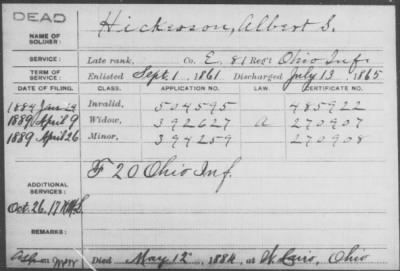 DEAD
NAME OF SOLDIER: Hickerson, Albert S.
SERVICE: Late rank, Co. E, 81 Reg't Ohio Inf.
TERM OF SERVICE: Enlisted Sept. 1, 1861 Discharged July 13, 1865
DATE OF FILING. CLASS. APPLICATION NO. LAW. CERTIFICATE NO.
1884 Jan 24 Invalid, 504595 485922
1889 April 9 Widow, 392627 A 270907
1889 April 26 Minor, 394259 270908
ADDITIONAL SERVICES: F 20 Ohio Inf.
Oct. 26, 17
REMARKS:
Died May 12, 1884, at W. Cairo, Ohio